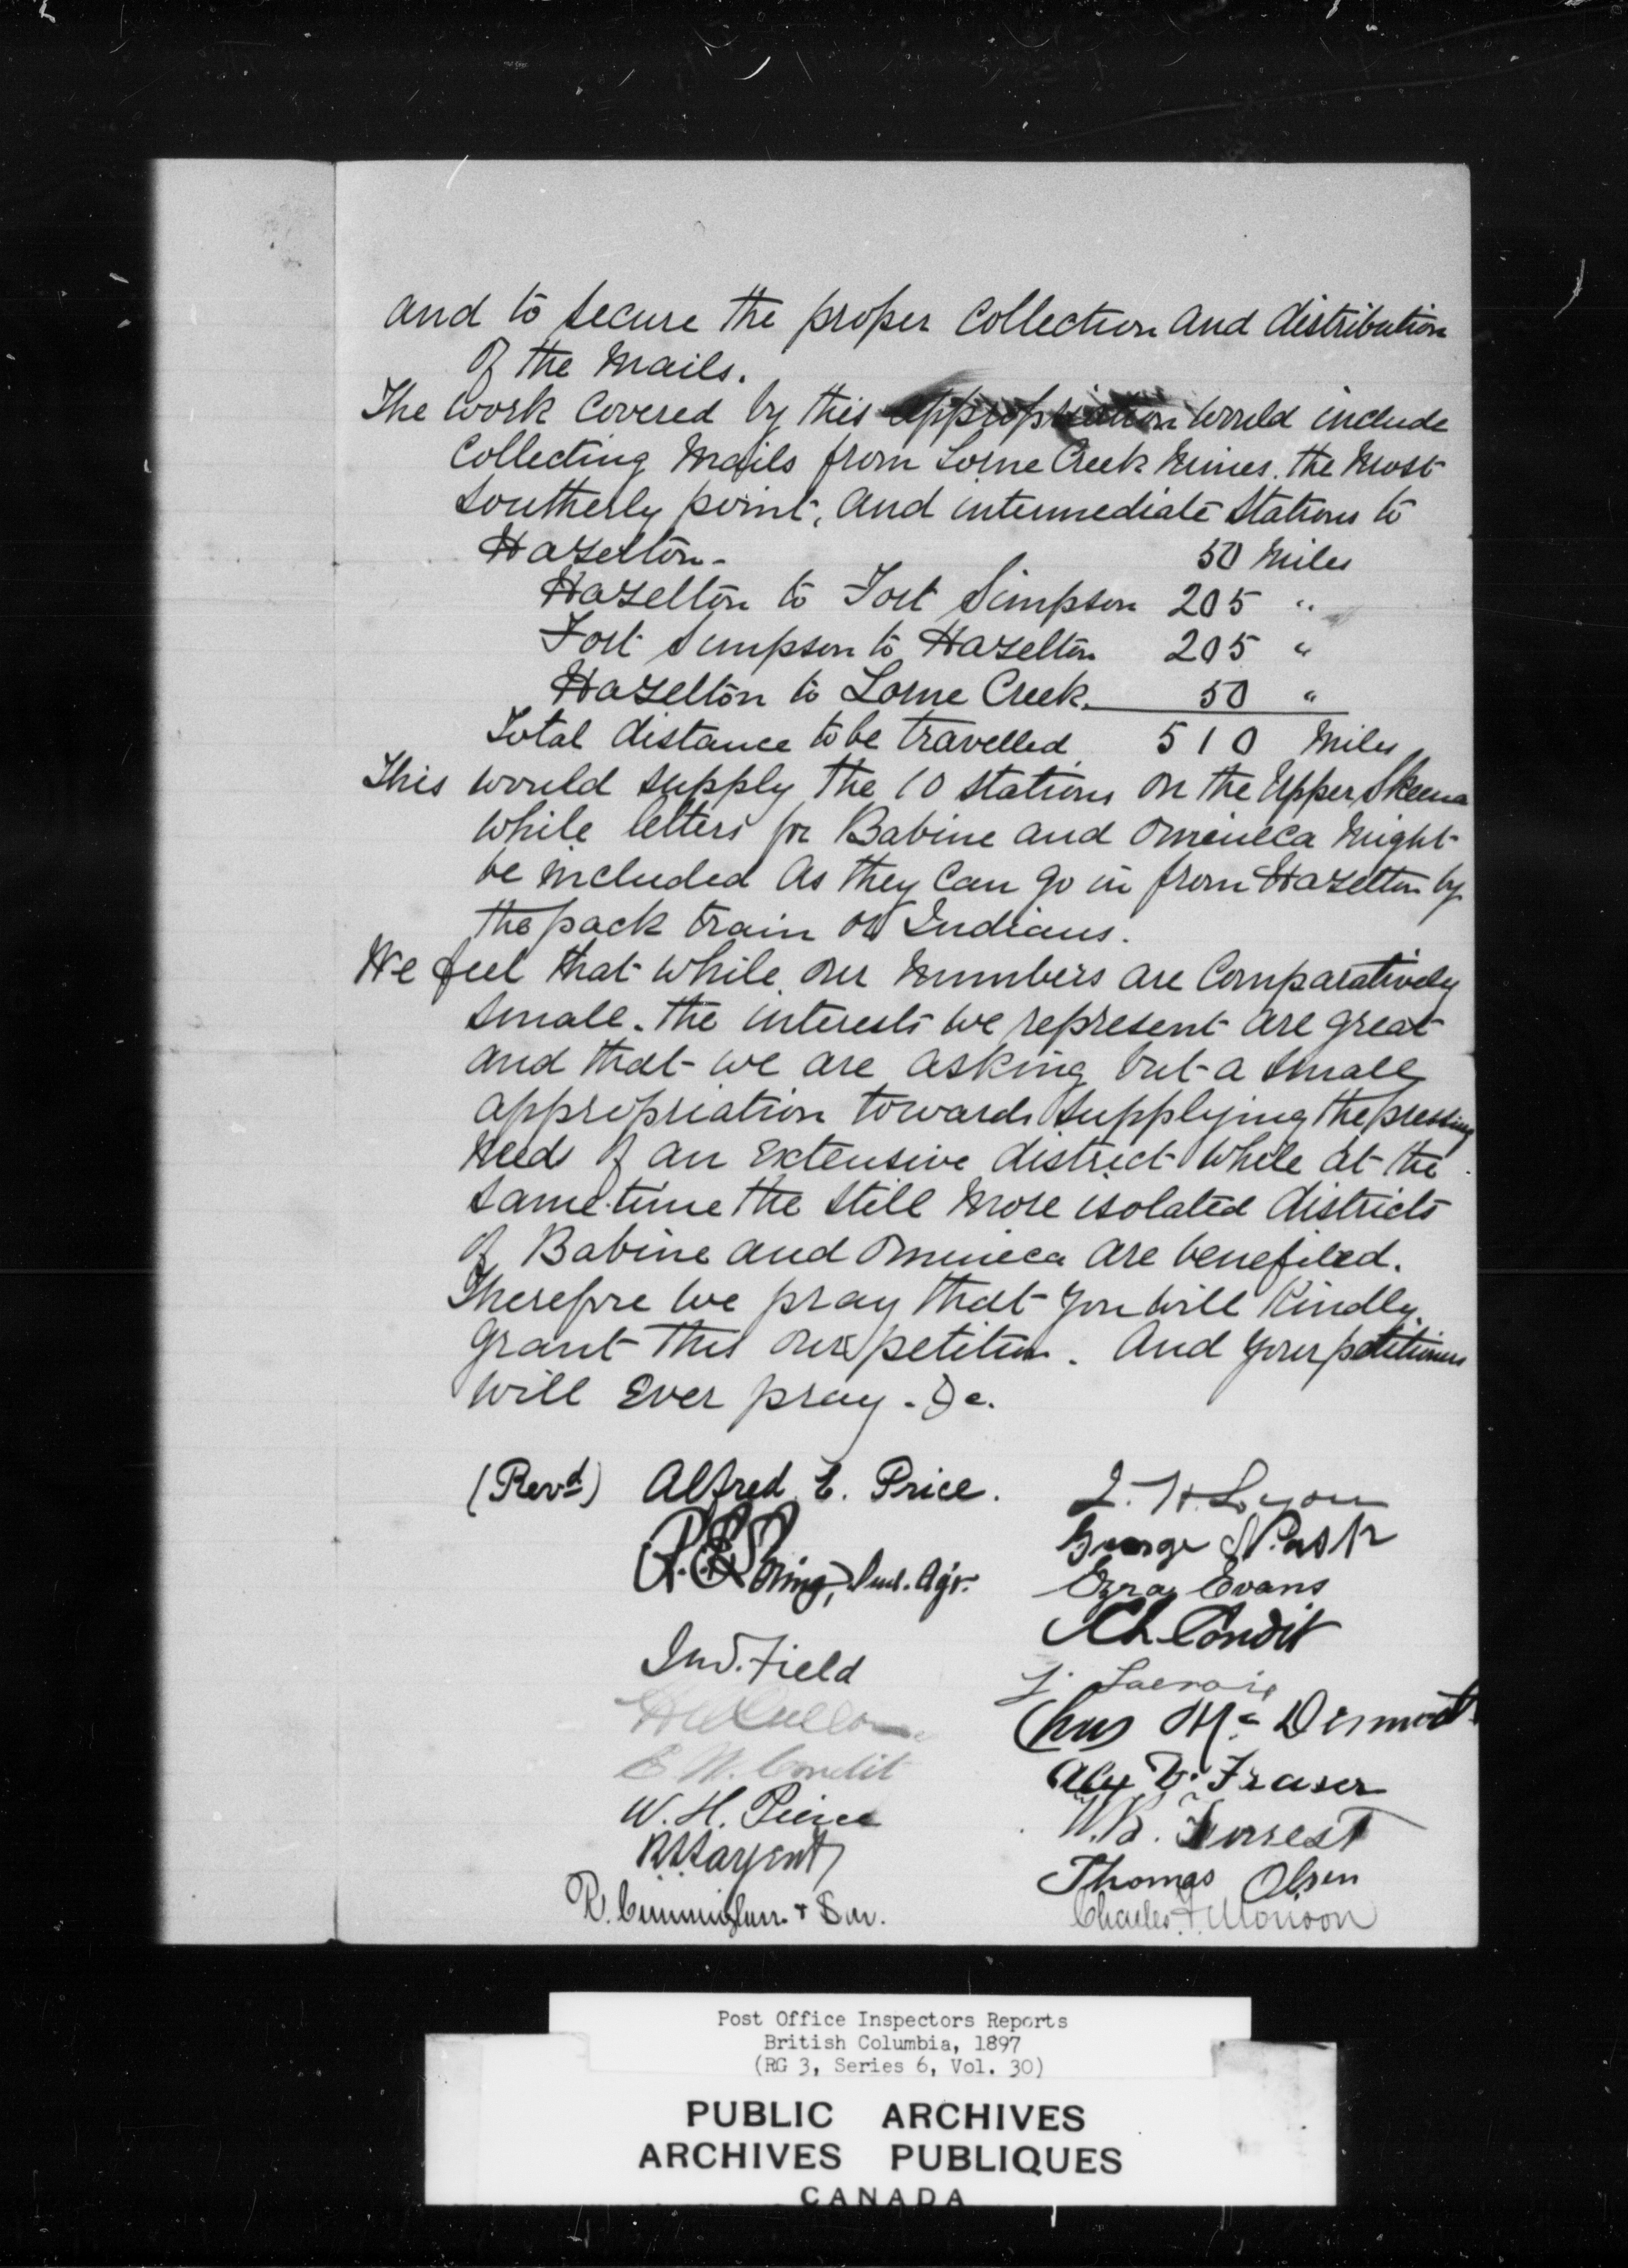 and to secure the proper collection and distribution
of the mails.
The work covered by this appropriation would include
collecting mails from Lorne Creek mines. the most
southerly point, and intermediate stations to
Hazelton - 50 miles
Hazelton to Fort Simpson 205 "
Fort Simpson to Hazelton 205 "
Hazelton to Lorne Creek. 50 "
Total distance to be travelled 510 miles
This would supply the 10 stations on the Upper Skeena
while letters for Babine and Omineca might
be included as they can go in from Hazelton by
the pack train or Indians.
We feel that while our numbers are comparatively
small. the interests we represent are great
and that we are asking but a small
appropriation towards supplying the pressing
need of an extensive district while at the
same time the still more isolated districts
of Babine and Omineca are benefited.
Therefore we pray that you will kindly
grant this our petition. And your petitioners
will ever pray. &c.
(Revd) Alfred E. Price.
R.E. Loring, Ind. Agt.
Jno. Field
E M. Condit
W. H. Pierce
R.S. Sargent
R. Cunningham & Son.
J. H. Lyon
George
Ezra Evans
Condit
J. Lacroix
Chas Mc Dermott
Alex D. Fraser
W.B. Forrest
Thomas Olsen
Charles F. Monson
Post Office Inspectors Reports
British Columbia, 1897
(RG 3, Series 6, Vol. 30)
PUBLIC ARCHIVES
ARCHIVES PUBLIQUES
CANADA